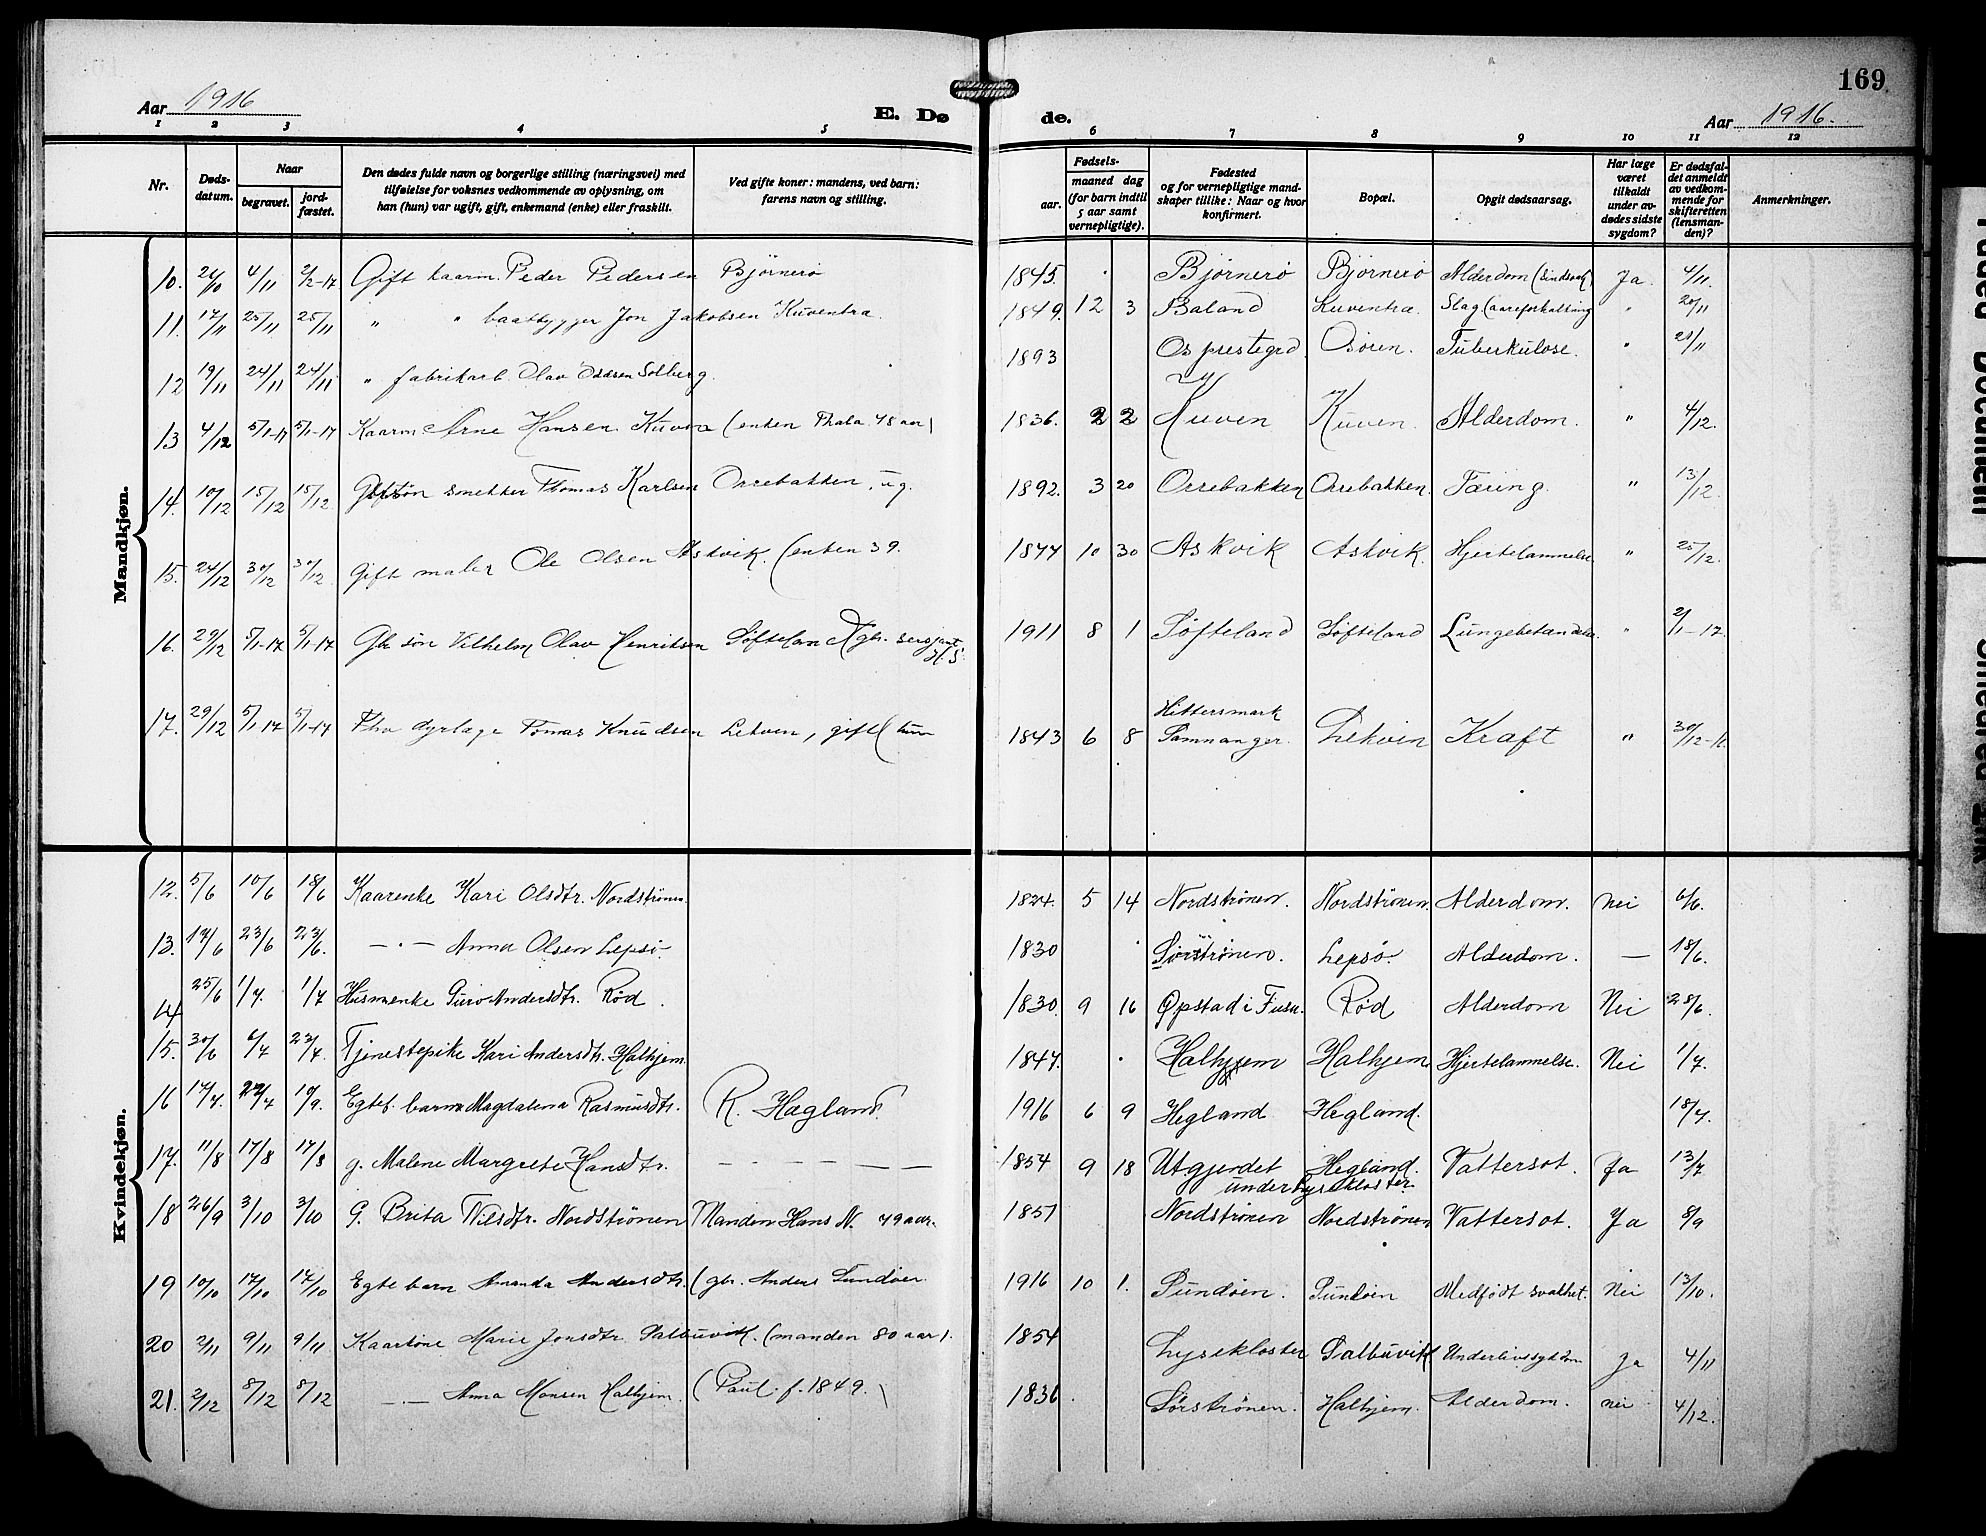 169
Aar 1916
E. Dø
de.
Aar 1916.
1 2 3 4 5 6 7 8 9 10 11 12
Nr.
Døds-
datum.
Naar
begravet.
jord-
fæstet.
Den dødes fulde navn og borgerlige stilling (næringsvei) med
tilføielse for voksnes vedkommende av oplysning, om
han (hun) var ugift, gift, enkemand (enke) eller fraskilt.
Ved gifte koner: mandens, ved barn:
farens navn og stilling.
Fødsels-
aar.
maaned dag
(for barn indtil
5 aar samt
vernepligtige).
Fødested
og for vernepligtige mand-
skaper tillike: Naar og hvor
konfirmert.
Bopæl.
Opgit dødsaarsag.
Har læge
været
tilkaldt
under av-
dødes sidste
sygdom?
Er dødsfal-
det anmeldt
av vedkom-
mende for
skifteretten
(lensman-
den)?
Anmerkninger.
Mandkjøn.
10. 4/11 2/2-17 Gift kaarm. Peder Pedersen Bjørnerø 1845. Bjørnerø Bjørnerø Alderdom Ja. 4/11.
11. 17/11 25/11 25/11 " " baatbygger Jon Jakobsen Kuventræ 1849. 12 3 Baland Kuventræ. Slag (aareforkalkning " 20/11
12 19/11 24/11 24/11 " fabrikarb. Olav Solberg. 1893 Os prestegrd Osøren. Tuberkulose. " 21/11
13 4/12 5/1-17 5/1-17 Kaarm Arne Hansen Kuven (enken 78 aar) 1836. 2 2 Kuven Kuven. Alderdom. " 4/12.
14. 10/12 15/12 15/12. søn snekker Thomas Karlsen Orrebakken, ug. 1892. 3 20 Orrebakken Orrebakken. Tæring. " 13/12.
15. 24/12 30/12 30/12. Gift maler Ole Olsen Askvik. (enken 39. 1877 10 30 Askvik Askvik. Hjertelammelse " 25/12.
16. 29/12 5/1-17 5/1-17 Gbr søn Vilhelm Olav Henriksen Søfteland (gbr. sersjant H. S. 1911 8 1 Søfteland Søfteland Lungebetændelse. " 2/1-17.
17. 29/12 5/1-17 5/1-17 Fhv dyrlæge Tomas Knudsen Lekven, gift 1843 6 8 Hittersmark Samnanger. Lekven Kraft " 30/12-16.
Kvindekjøn.
12. 5/6 10/6 18/6 Kaarenke Kari Olsdtr. Nordstrønen. 1824. 5 14 Nordstrønen. Nordstrønen. Alderdom. Nei 6/6.
13. 17/6 23/6 23/6. — " — Anna Olsen Lepsø. 1830 Sørstrønen. Lepsø. Alderdom. — 18/6.
14 25/6 1/7. 1/7 Husmenke Guro Andersdtr. Rød. 1830. 9 16 Opstad i Fusa. Rød Alderdom Nei 28/6.
15. 30/6 6/7 23/7. Tjenestepike Kari Andersdtr. Halhjem. 1847. Halhjem Halhjem Hjertelammelse. Nei 1/7.
16 17/7. 27/7 10/9. Egtef. barn Magdalena Rasmusdtr. R. Hægland. 1916 6 9 Hegland Hegland. 18/7.
17. 11/8 17/8 17/8 g. Malene Margrete Hansdtr. — — — — — 1854 9 18 Utgjerdet under Lysekloster Hegland. Vattersot. Ja 13/7
18 26/9 3/10 3/10 G. Brita Nilsdtr. Nordstrønen Manden Hans N. 79 aar. 1857 Nordstrønen Nordstrønen Vattersot. Ja 8/9
19 10/10 17/10 17/10 Egte barn Amanda Andersdtr. (gbr. Anders Sundøen. 1916 10 1. Sundøen. Sundøen Medfødt svakhet. Nei 13/10.
20 2/11 9/11 9/11 Kaarkone Marie Jonsdtr. Salbuvik. (manden 80 aar). 1854 Lysekloster Salbuvik Underlivssygdom Ja 4/11
21. 2/12 8/12 8/12 — " — Anna Monsen Halhjem (Paul. f. 1849.) 1836 Sørstrønen. Halhjem. Alderdom. nei 4/12.